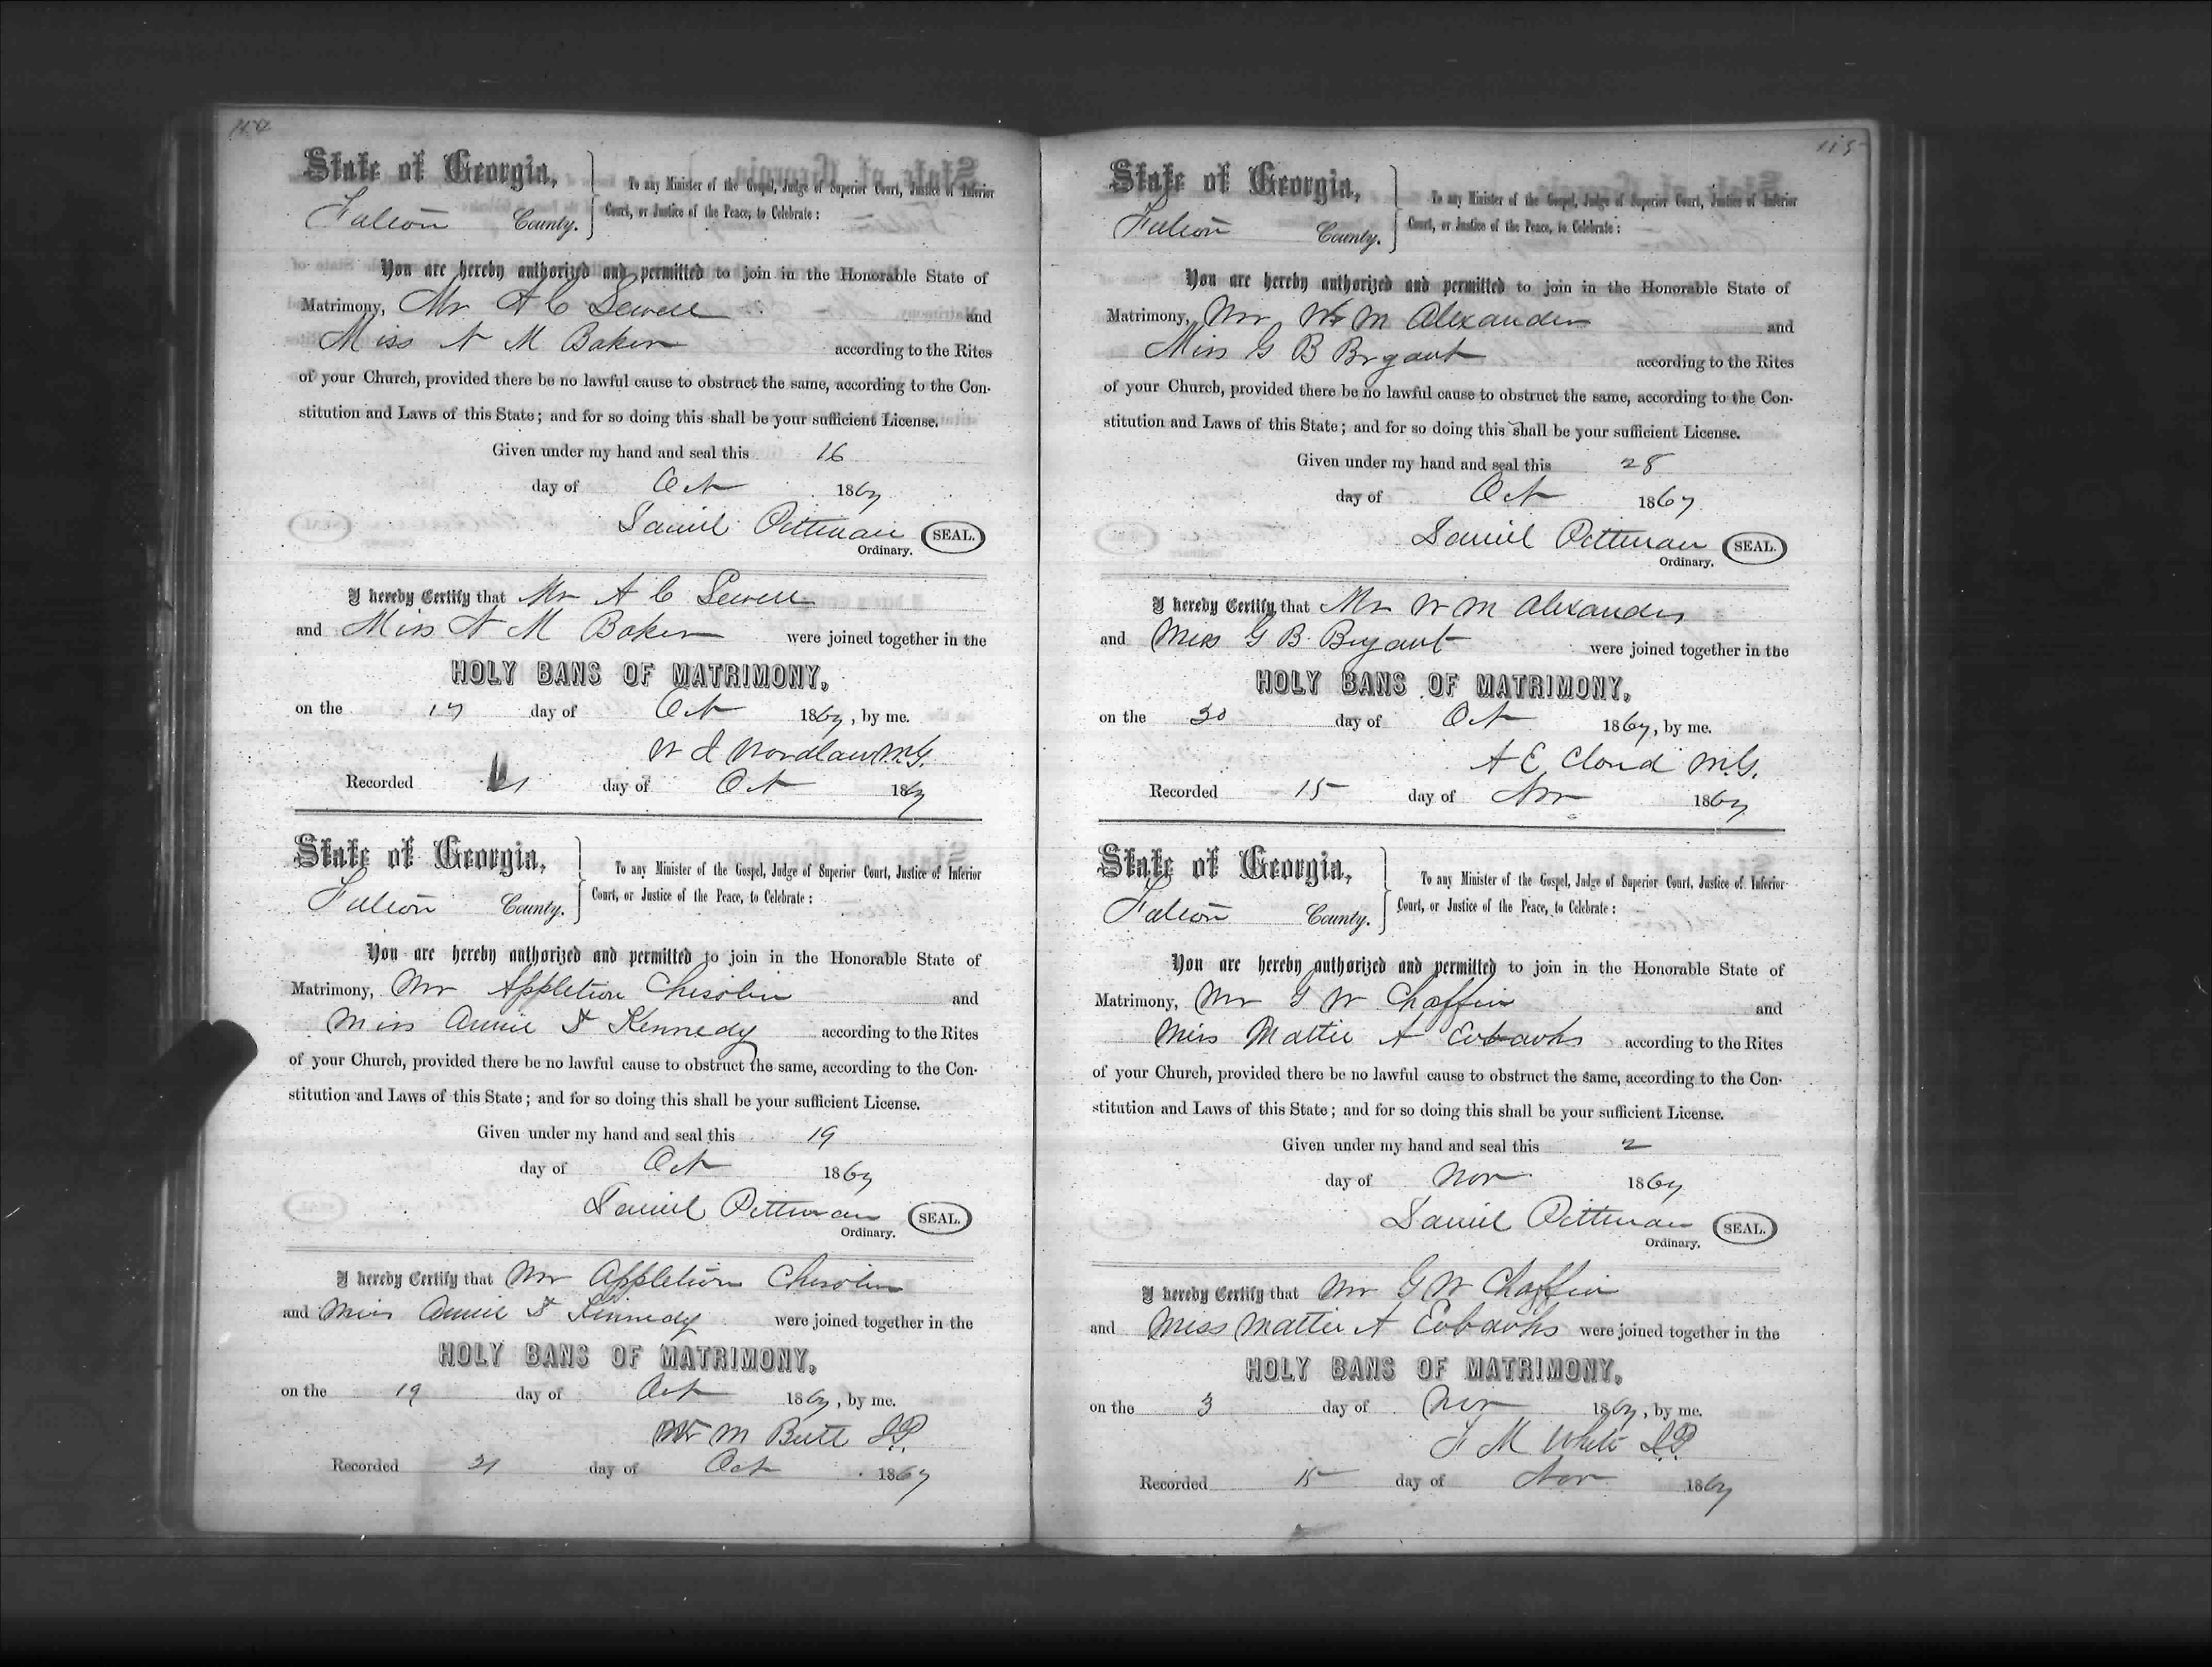 State of Georgia,
Fulton County.
To any Minister of the Gospel, Judge of Superior Court, Justice of Inferior
Court, or Justice of the Peace, to Celebrate:
You are hereby authorized and permitted to join in the Honorable State of
Matrimony, Mr A C Sewell and
Miss N M Baker according to the Rites
of your Church, provided there be no lawful cause to obstruct the same, according to the Con-
stitution and Laws of this State; and for so doing this shall be your sufficient License.
Given under my hand and seal this 16
day of Oct 1867
Daniel Pittman SEAL.
Ordinary.
I hereby Certify that Mr A C Sewell
and Miss N M Baker were joined together in the
HOLY BANS OF MATRIMONY,
on the 17 day of Oct 1867, by me.
W J Wardlaw M.G.
Recorded 21 day of Oct 1867
State of Georgia,
Fulton County.
To any Minister of the Gospel, Judge of Superior Court, Justice of Inferior
Court, or Justice of the Peace, to Celebrate:
You are hereby authorized and permitted to join in the Honorable State of
Matrimony, Mr Appleton Chisolm and
Miss Annie Kennedy according to the Rites
of your Church, provided there be no lawful cause to obstruct the same, according to the Con-
stitution and Laws of this State; and for so doing this shall be your sufficient License.
Given under my hand and seal this 19
day of Oct 1867
Daniel Pittman SEAL.
Ordinary.
I hereby Certify that Mr Appleton Chisolm
and Miss Annie Kennedy were joined together in the
HOLY BANS OF MATRIMONY,
on the 19 day of Oct 1867, by me.
Wm M Butt J.P.
Recorded 21 day of Oct 1867
115
State of Georgia,
Fulton County.
To any Minister of the Gospel, Judge of Superior Court, Justice of Inferior
Court, or Justice of the Peace, to Celebrate:
You are hereby authorized and permitted to join in the Honorable State of
Matrimony, Mr W M Alexander and
Miss G B Bryant according to the Rites
of your Church, provided there be no lawful cause to obstruct the same, according to the Con-
stitution and Laws of this State; and for so doing this shall be your sufficient License.
Given under my hand and seal this 28
day of Oct 1867
Daniel Pittman SEAL.
Ordinary.
I hereby Certify, that Mr W M Alexander
and Miss G B Bryant were joined together in the
HOLY BANS OF MATRIMONY,
on the 30 day of Oct 1867, by me.
A E Cloud M.G.
Recorded 15 day of Nov 1867
State of Georgia,
Fulton County.
To any Minister of the Gospel, Judge of Superior Court, Justice of Inferior
Court, or Justice of the Peace, to Celebrate:
You are hereby authorized and permitted to join in the Honorable State of
Matrimony, Mr G W Chaffin and
Miss Mattie A Eubanks according to the Rites
of your Church, provided there be no lawful cause to obstruct the same, according to the Con-
stitution and Laws of this State; and for so doing this shall be your sufficient License.
Given under my hand and seal this 2
day of Nov 1867
Daniel Pittman SEAL.
Ordinary.
I hereby Certify that Mr G W Chaffin
and Miss Mattie A Eubanks were joined together in the
HOLY BANS OF MATRIMONY,
on the 3 day of Nov 1867, by me.
F M White J.P.
Recorded 15 day of Nov 1867